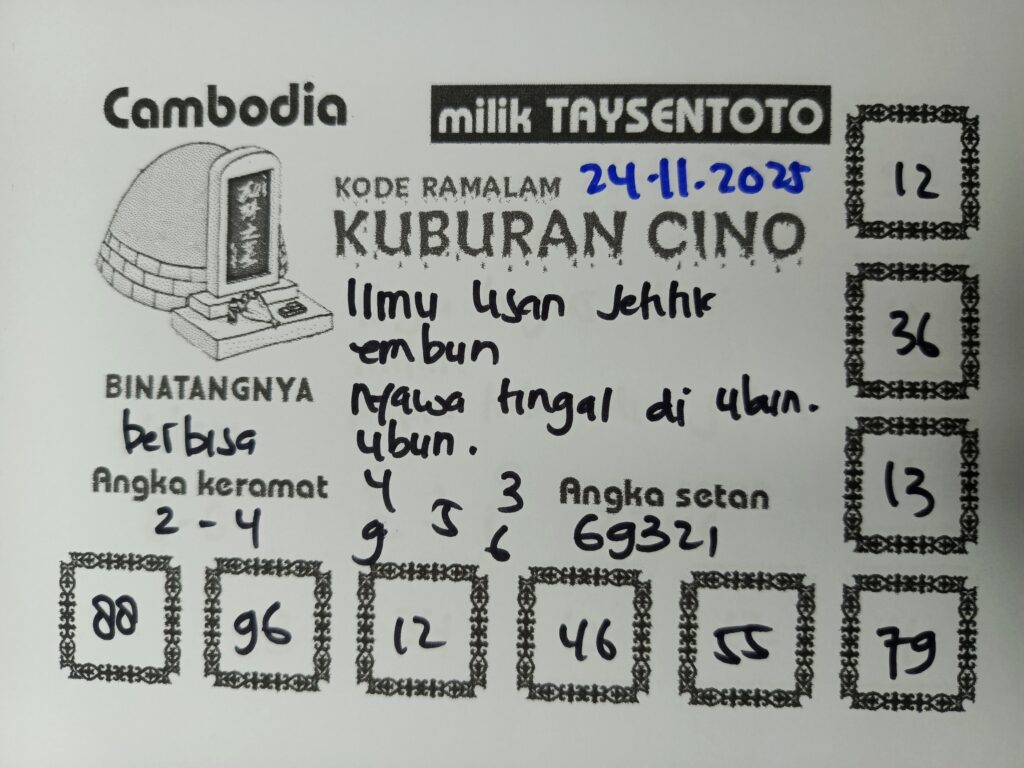 Cambodia
milik TAYSENTOTO
KODE RAMALAM 24.11.2025
KUBURAN CINO
Ilmu usan setitik
embun
Nyawa tingal di ubun.
ubun.
BINATANGNYA
berbisa
Angka keramat
2 - 4
4 3
5
9 6
Angka setan
69321
12
36
13
88 96 12 46 55 79